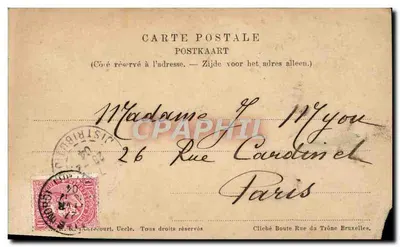 CARTE POSTALE
POSTKAART
(Côté réservé à l'adresse. — Zijde voor het adres alleen.)
Madame J Myon
26 Rue Cardinel
Paris
CPAPHIL
DISTRIBU
Uccle. Tous droits réservés
Cliché Boute Rue du Trône Bruxelles.